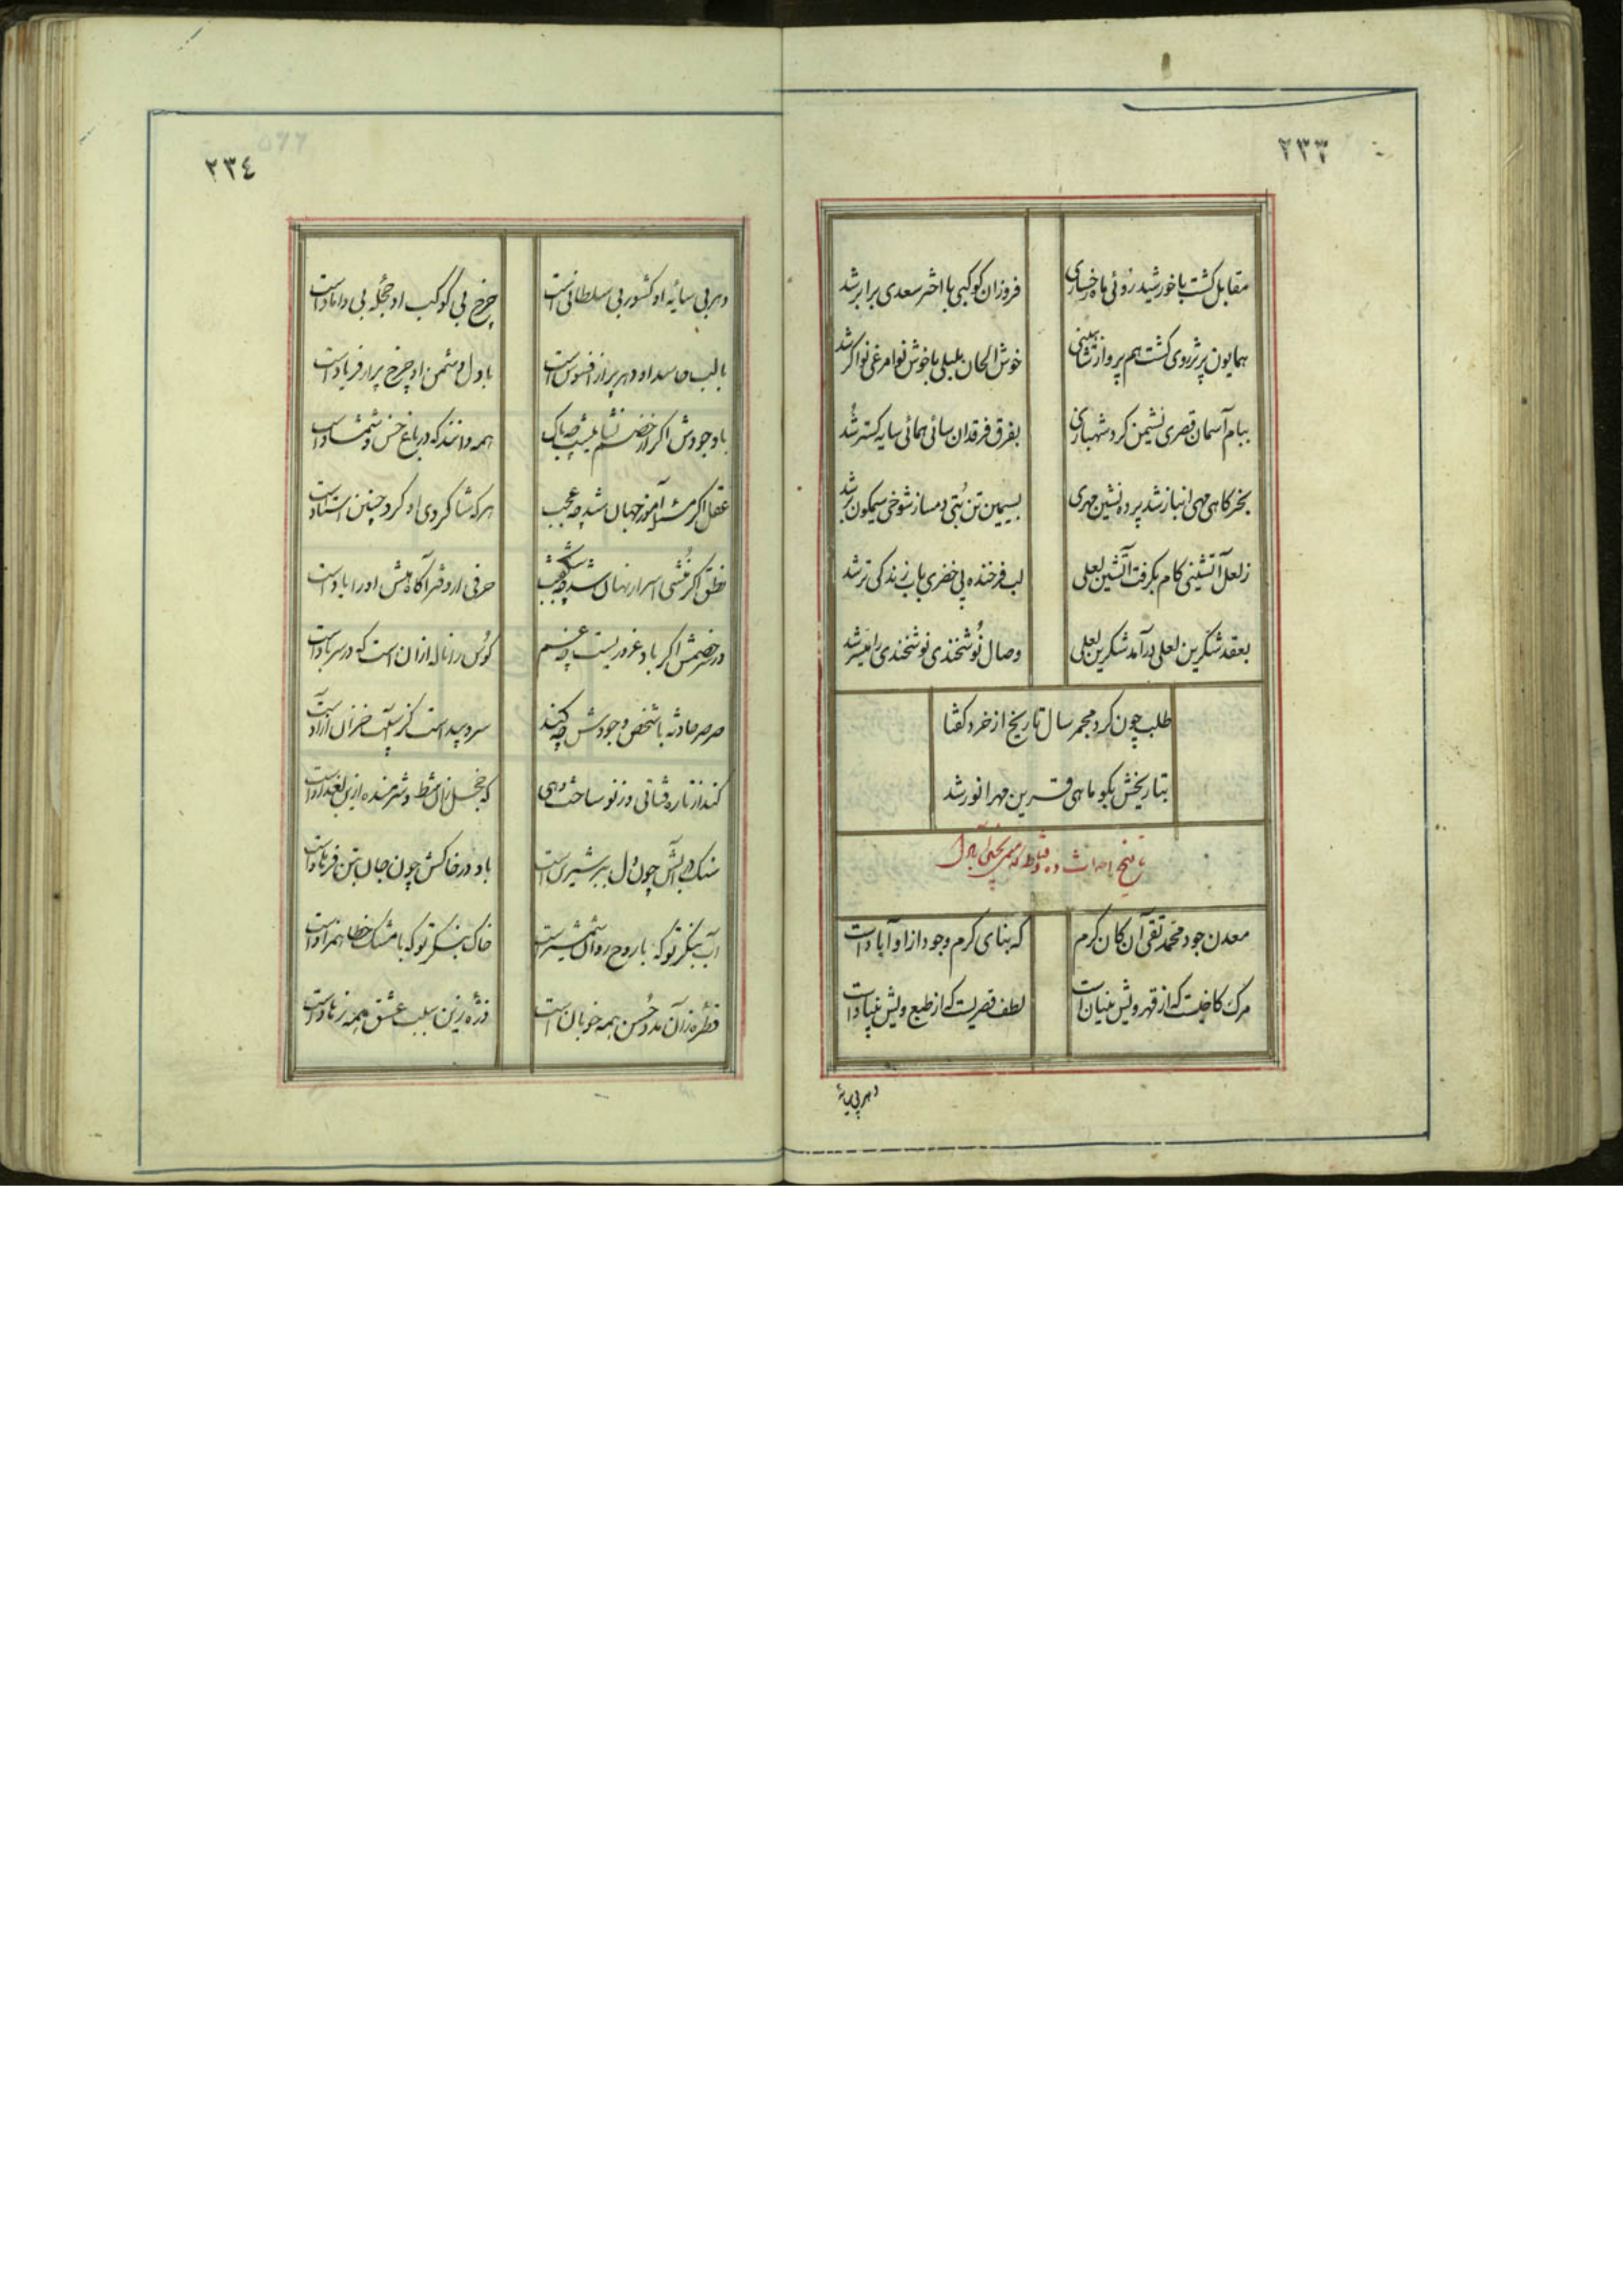 ٢٣٣
مقابل کشت با خورشید روئی ماه رخساری
فروزان کوکبی با اختر سعدی برابر شد
همایون پر تذروی کشت هم پرواز شاهینی
خوش الحان بلبلی با خوش نوا مرغی نواکر شد
ببام آسمان قصری نشیمن کرد شهبازی
بفرق فرقدان سائی همائی سایه کستر شد
بخرکاهی مهی انباز شد پرده نشین مهری
بسیمین تن بتی دمساز شوخی سیمکون بر شد
ز لعل آتشینی کام بکرفت آتشین لعلی
لب فرخنده پی خضری بآب زندکی تر شد
بعقد شکرین لعلی درآمد شکرین لعلی
وصال نوشخندی نوشخندی را میسر شد
طلب چون کرد مجمر سال تاریخ از خرد کفتا
بتاریخش بکو ماهی قرین مهر انور شد
تاریخ احداث ده و قناط که
معدن جود محمد تقی آن کان کرم
که بنای کرم وجود از او آبادست
مرک کاخیست که از قهر ویش بنیان است
لطف قصریست که از طبع ویش بنیاد است
دهر بی سایهٔ
٢٣٤
دهر بی سایهٔ او کشور بی سلطانی است
چرخ بی کوکب او حجلهٔ بی داماد است
با لب حاسد او دهر پر از افسوس است
با دل دشمن او چرخ پر از فریاد است
با وجودش اکر از خصم نشانیست چه باک
همه دانند که در باغ خس و شمشاد است
عقل اکر آموز جهان شد چه عجب
هر که شاکردی او کرد چنین استاد است
نطق اکر منشی اسرار نهان شد چه شکفت
حرفی از دفتر آکاهیش او را یاد است
در سر خصمش اکر باد غروریست چه غم
کوس را ناله از آن است که در سر باد است
صرصر حادثه با شخص وجودش چه کند
سرو پیداست کز آسیب خزان آزاد است
کند از تازه قناتی و ز نو ساخت دهی
که خجل زان شط و شرمنده ازین بغداد است
سنک در آبش چون دل ببر شیرین است
باد در خاکش چون جان بتن فرهاد است
آب بنکر تو که با روح روان است
خاک بنکر تو که با مشک خطا همزاد است
قطره زان مدد حسن همه خوبان است
ذره زین سلب عشق همه زهاد است